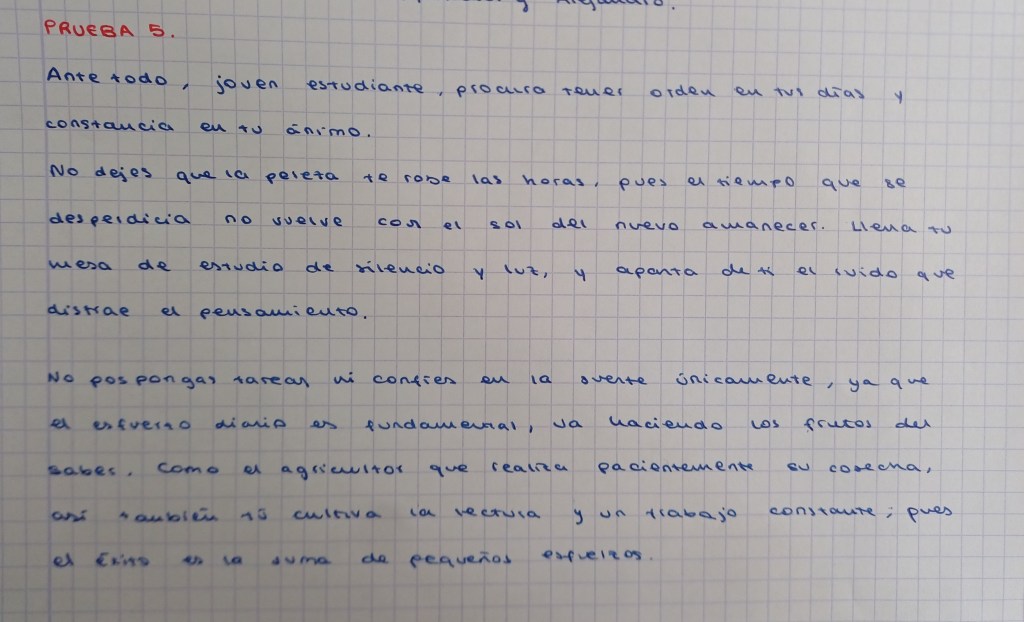 y Alejandro.
PRUEBA 5.
Ante todo, joven estudiante, procura tener orden en tus días y
constancia en tu ánimo.
No dejes que la pereza te robe las horas, pues el tiempo que se
desperdicia no vuelve con el sol del nuevo amanecer. Llena tu
mesa de estudio de silencio y luz, y aparta de ti el ruido que
distrae el pensamiento.
No pospongas tareas ni confíes en la suerte únicamente, ya que
el esfuerzo diario es fundamental, va haciendo los frutos del
saber. Como el agricultor que realiza pacientemente su cosecha,
así también tú cultiva la lectura y un trabajo constante; pues
el éxito es la suma de pequeños esfuerzos.